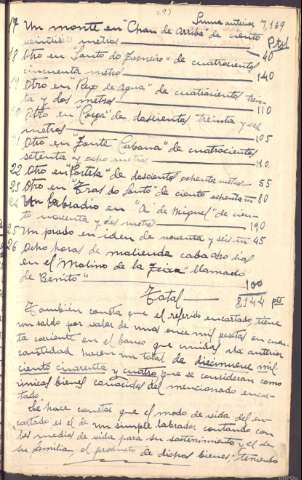 Suma anterior 7,169
17 Un monte en "Chan de Arriba" de ciento Ptas
metros 40
Otro en "Santo do" de cuatrocientos
cincuenta metros 140
Otro en "Rego de Agua" de cuatrocientos
ta y dos metros 110
Otro en de doscientos treinta y seis
metros 105
Otro en "Fonte Cabana" de cuatrocientos
setenta y ocho metros
22 Otro en "Portela" de doscientos ochenta metros 55
23 Otro en "Eras do Santo" de ciento ochenta m 80
24 Un Labradio en "A de Miguel" de cien-
to noventa y dos metros 190
25 Un prado en iden de noventa y seis m 45
26 Ocho horas de molienda cada dos dias
en el "Molino de la" llamado
de Benito" 100
Total 8.144 pts
También consta que el referido encartado tiene
un saldo por valor de unas once mil pesetas en cuen-
ta corriente en el banco que unidas a la anterior
cantidad hacen un total de diecinueve mil
ciento cuarenta y cuatro que se consideran como
únicos bienes conocidos del mencionado encar-
tado.
Se hace constar que el modo de vida del en-
cartado es el de un simple labrador contando con
los medios de vida para su sostenimiento y el de
su familia el producto de dichos bienes, teniendo